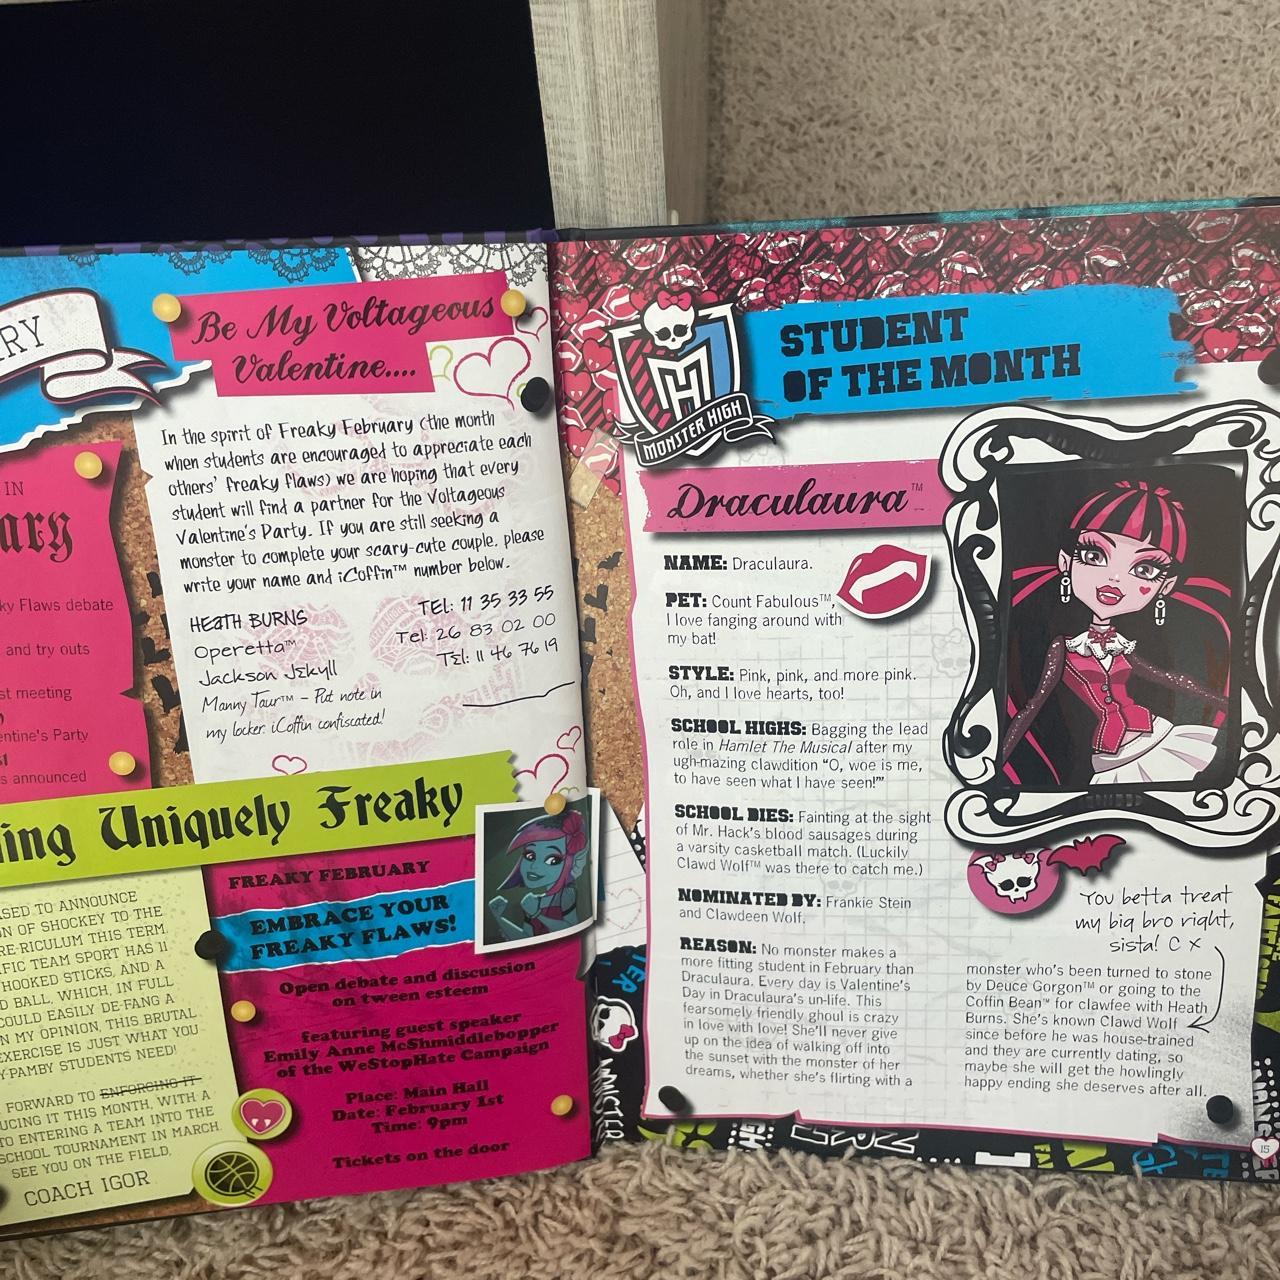 RY
IN
ary
ky Flaws debate
and try outs
st meeting
entine's Party
s announced
Be My Voltageous
Valentine....
In the spirit of Freaky February (the month
when students are encouraged to appreciate each
others' freaky flaws) we are hoping that every
student will find a partner for the Voltageous
Valentine's Party. If you are still seeking a
monster to complete your scary-cute couple, please
write your name and iCoffin™ number below.
HEATH BURNS TEL: 11 35 33 55
Operetta™ Tel: 26 83 02 00
Jackson Jekyll Tel: 11 46 76 19
Manny Taur™ – Put note in
my locker. iCoffin confiscated!
ing Uniquely Freaky
ASED TO ANNOUNCE
ON OF SHOCKEY TO THE
RE-RICULUM THIS TERM.
IFIC TEAM SPORT HAS 11
HOOKED STICKS, AND A
D BALL, WHICH, IN FULL
COULD EASILY DE-FANG A
N MY OPINION, THIS BRUTAL
EXERCISE IS JUST WHAT YOU
Y-PAMBY STUDENTS NEED!
FORWARD TO ENFORCING IT
UCING IT THIS MONTH, WITH A
TO ENTERING A TEAM INTO THE
SCHOOL TOURNAMENT IN MARCH.
SEE YOU ON THE FIELD,
COACH IGOR
FREAKY FEBRUARY
EMBRACE YOUR
FREAKY FLAWS!
Open debate and discussion
on tween esteem
featuring guest speaker
Emily Anne McShmiddlebopper
of the WeStopHate Campaign
Place: Main Hall
Date: February 1st
Time: 9pm
Tickets on the door
MONSTER HIGH
STUDENT
OF THE MONTH
Draculaura™
NAME: Draculaura.
PET: Count Fabulous™,
I love fanging around with
my bat!
STYLE: Pink, pink, and more pink.
Oh, and I love hearts, too!
SCHOOL HIGHS: Bagging the lead
role in Hamlet The Musical after my
ugh-mazing clawdition "O, woe is me,
to have seen what I have seen!"
SCHOOL DIES: Fainting at the sight
of Mr. Hack's blood sausages during
a varsity casketball match. (Luckily
Clawd Wolf™ was there to catch me.)
NOMINATED BY: Frankie Stein
and Clawdeen Wolf.
REASON: No monster makes a
more fitting student in February than
Draculaura. Every day is Valentine's
Day in Draculaura's un-life. This
fearsomely friendly ghoul is crazy
in love with love! She'll never give
up on the idea of walking off into
the sunset with the monster of her
dreams, whether she's flirting with a
You betta treat
my big bro right,
sista! C x
monster who's been turned to stone
by Deuce Gorgon™ or going to the
Coffin Bean™ for clawfee with Heath
Burns. She's known Clawd Wolf
since before he was house-trained
and they are currently dating, so
maybe she will get the howlingly
happy ending she deserves after all.
15